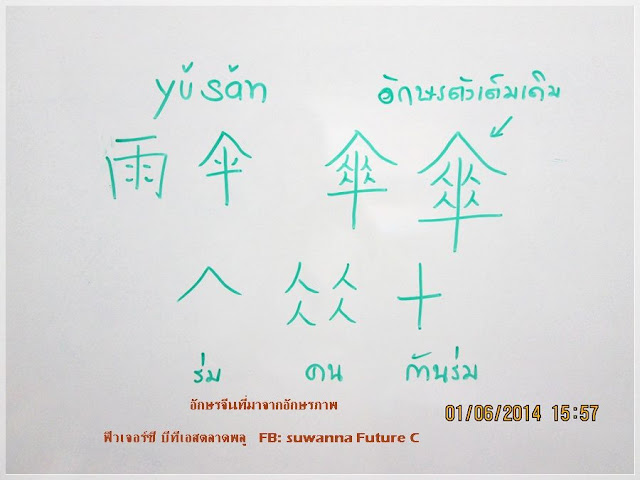 yǔsǎn อักษรตัวเต็มเดิม
雨伞 傘 傘
𠆢 人人人人 十
ร่ม คน ก้านร่ม
อักษรจีนที่มาจากอักษรภาพ
01/06/2014 15:57
ฟิวเจอร์ซี บีทีเอสตลาดพลู FB: suwanna Future C